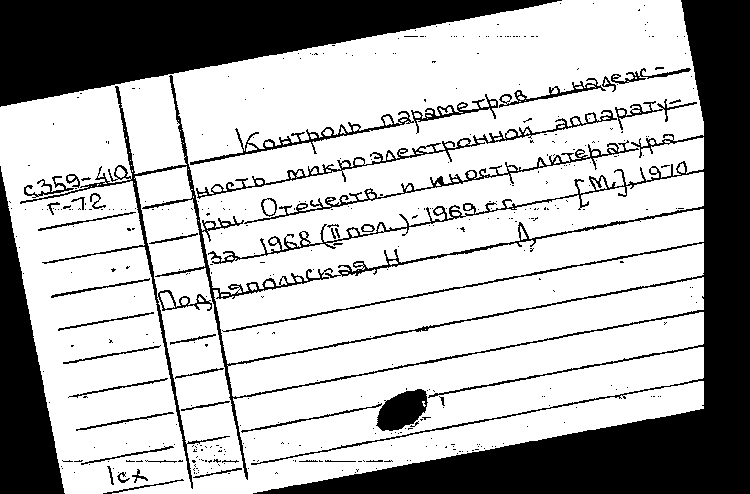 Контроль параметров и надеж-
с359-410 ность микроэлектронной аппарату-
Г-72 ры. Отечеств. и иностр. литература
за 1968 (II пол.) - 1969 г.г. [М.], 1970
Подъяпольская, Н Д
1сх